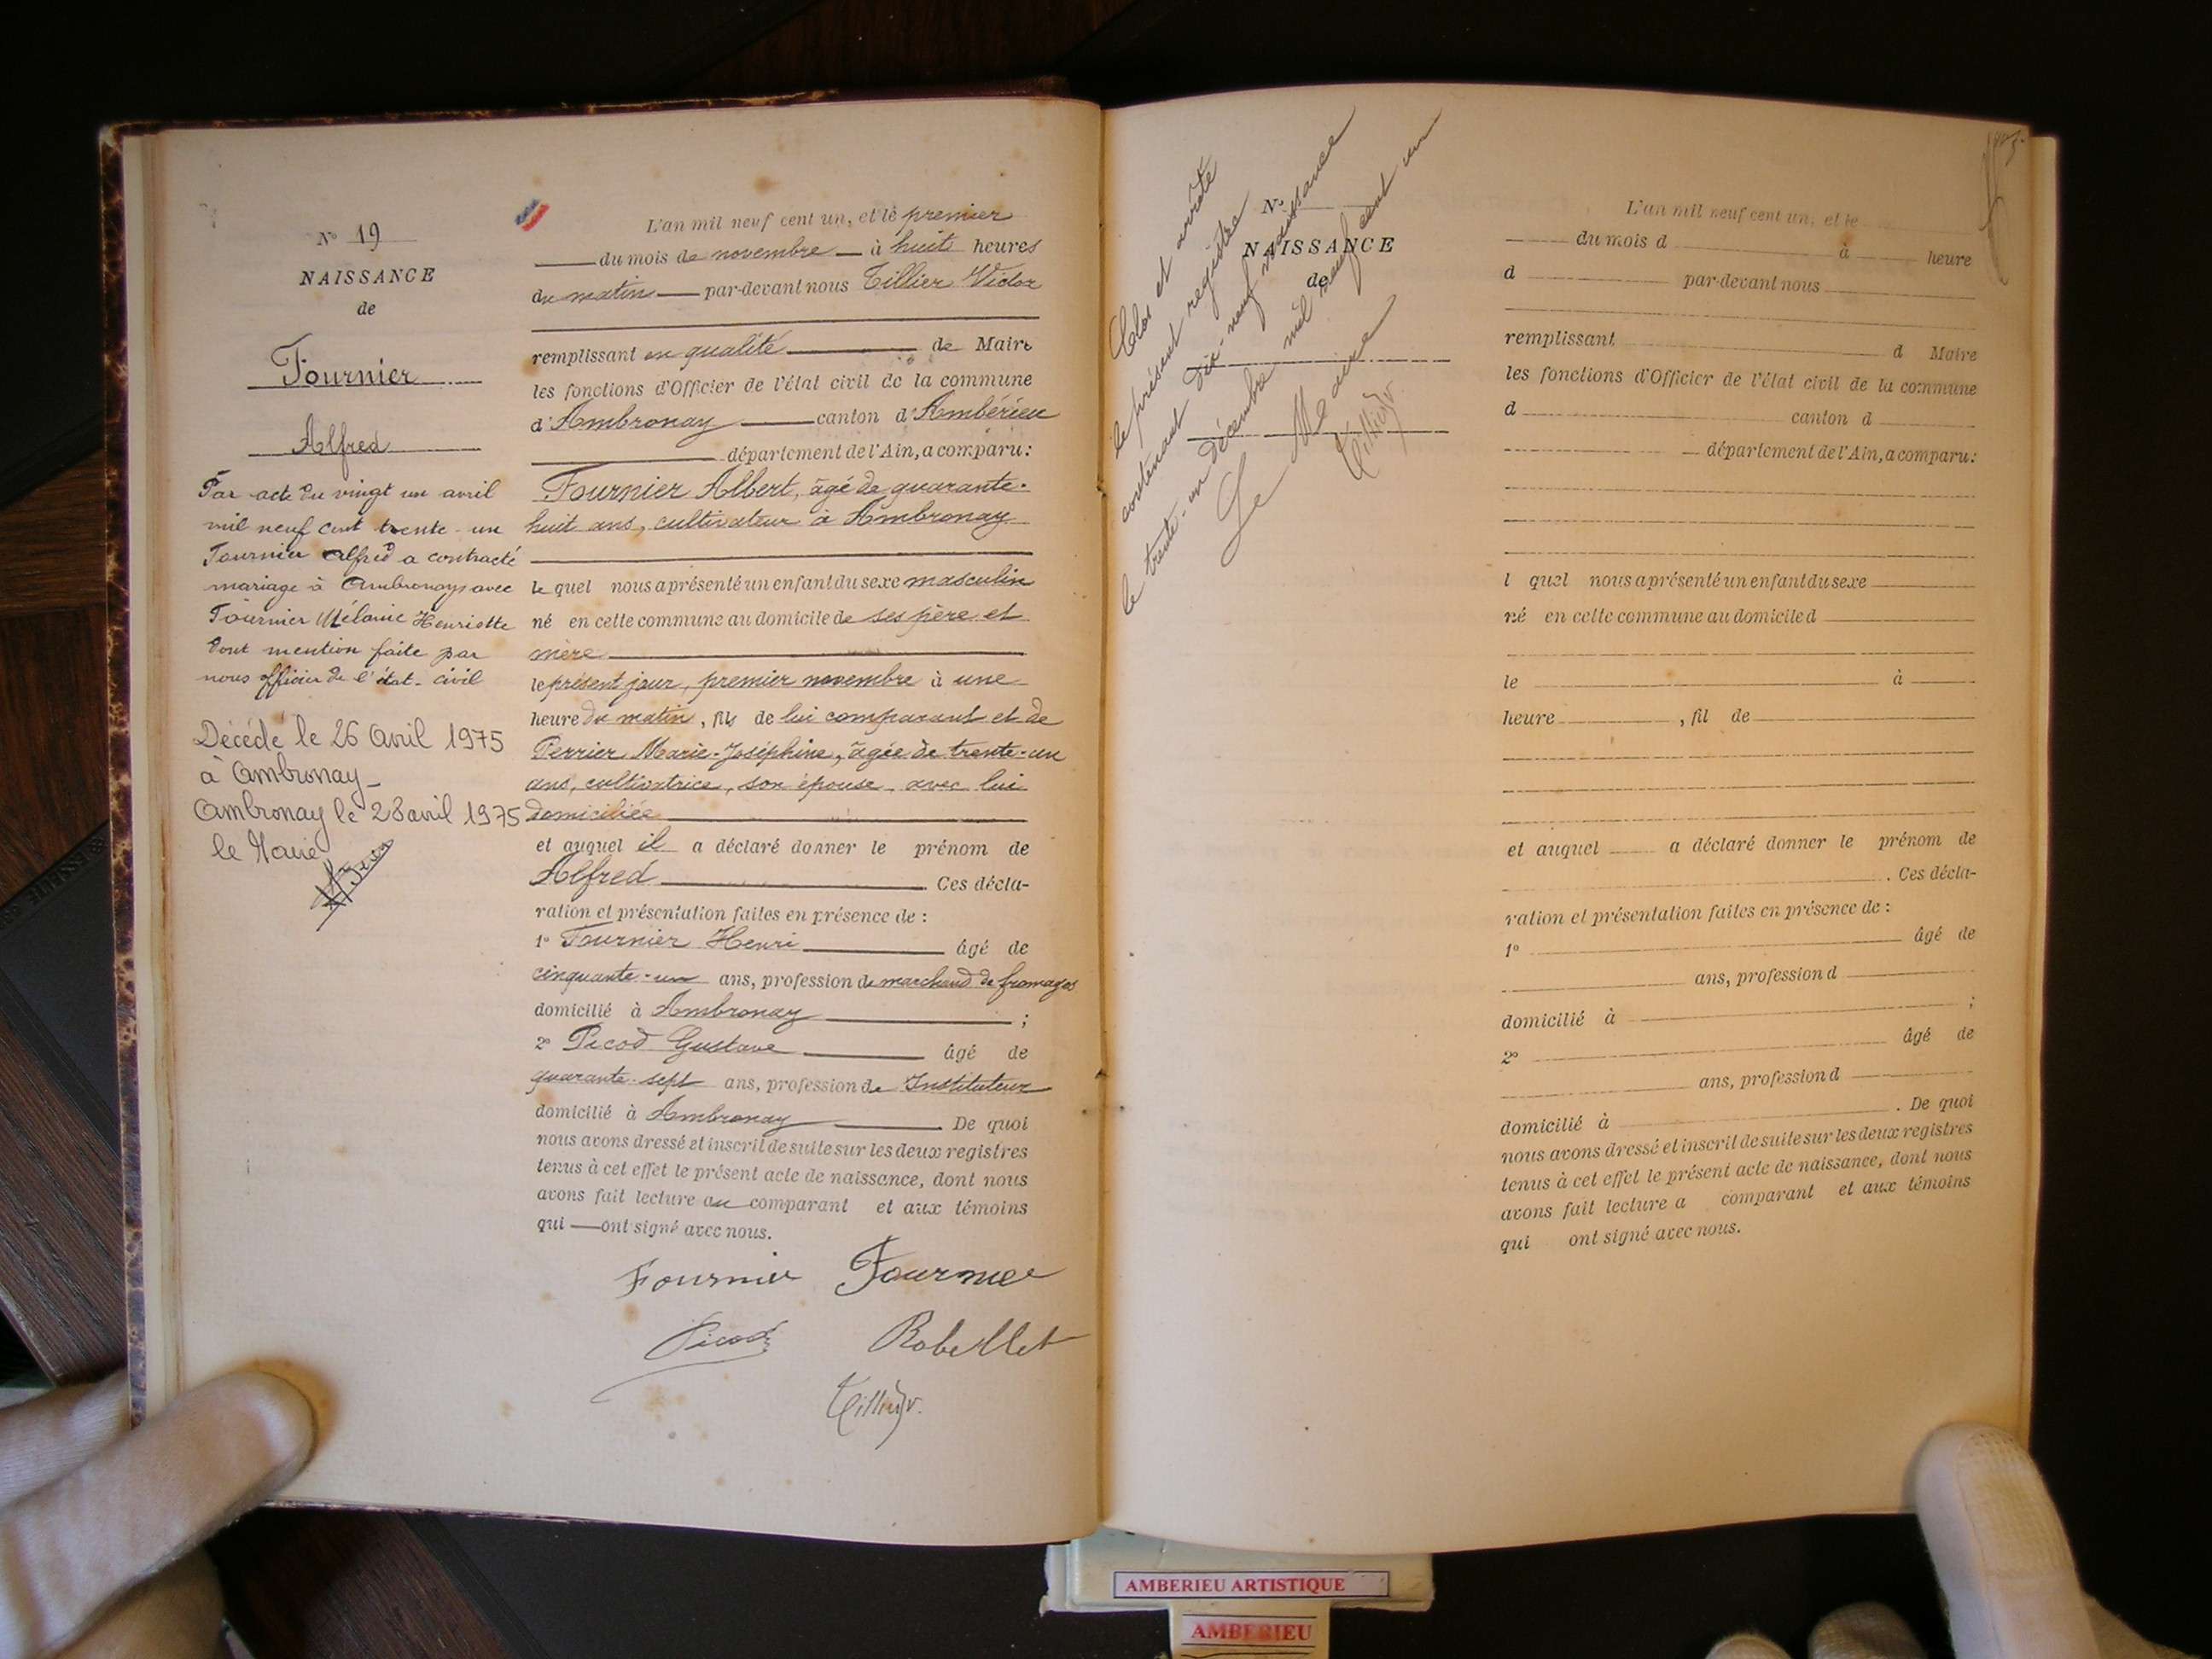 N° 19
NAISSANCE
de
Fournier
Alfred
Par acte du vingt un avril
mil neuf cent trente-un
Fournier Alfred a contracté
mariage à Ambronay avec
Fournier Mélanie Henriette
dont mention faite par
nous officier de l'état-civil
Décédé le 26 Avril 1975
à Ambronay_
Ambronay le 28 avril 1975
le Maire
L'an mil neuf cent un, et le premier
du mois de novembre à huit heures
du matin par-devant nous Tillier Victor
remplissant en qualité de Maire
les fonctions d'Officier de l'état civil de la commune
d'Ambronay canton d'Ambérieu
département de l'Ain, a comparu:
Fournier Albert, âgé de quarante-
huit ans, cultivateur à Ambronay
le quel nous a présenté un enfant du sexe masculin
né en cette commune au domicile de ses père et
mère
le présent jour, premier novembre à une
heure du matin, fils de lui comparant et de
Perrier Marie-Joséphine, âgée de trente-un
ans, cultivatrice, son épouse avec lui
domiciliée
et auquel il a déclaré donner le prénom de
Alfred Ces décla-
ration et présentation faites en présence de :
1° Fournier Henri âgé de
cinquante-un ans, profession de marchand de fromages
domicilié à Ambronay ;
2° Picod Gustave âgé de
quarante-sept ans, profession de Instituteur
domicilié à Ambronay De quoi
nous avons dressé et inscrit de suite sur les deux registres
tenus à cet effet le présent acte de naissance, dont nous
avons fait lecture au comparant et aux témoins
qui ont signé avec nous.
Fournier Fournier
Picod Robellet
Tillier v.
Clos et arrêté
le présent registre
contenant dix-neuf naissance
le trente-un décembre mil neuf cent un
Le Maire
Tillier v.
N°
NAISSANCE
de
L'an mil neuf cent un, et le
du mois d à heure
d par-devant nous
remplissant d Maire
les fonctions d'Officier de l'état civil de la commune
d canton d
département de l'Ain, a comparu:
l quel nous a présenté un enfant du sexe
né en cette commune au domicile d
le à
heure , fil de
et auquel a déclaré donner le prénom de
. Ces décla-
ration et présentation faites en présence de :
1° âgé de
ans, profession d
domicilié à ;
2° âgé de
ans, profession d
domicilié à . De quoi
nous avons dressé et inscrit de suite sur les deux registres
tenus à cet effet le présent acte de naissance, dont nous
avons fait lecture a comparant et aux témoins
qui ont signé avec nous.
AMBERIEU ARTISTIQUE
AMBERIEU